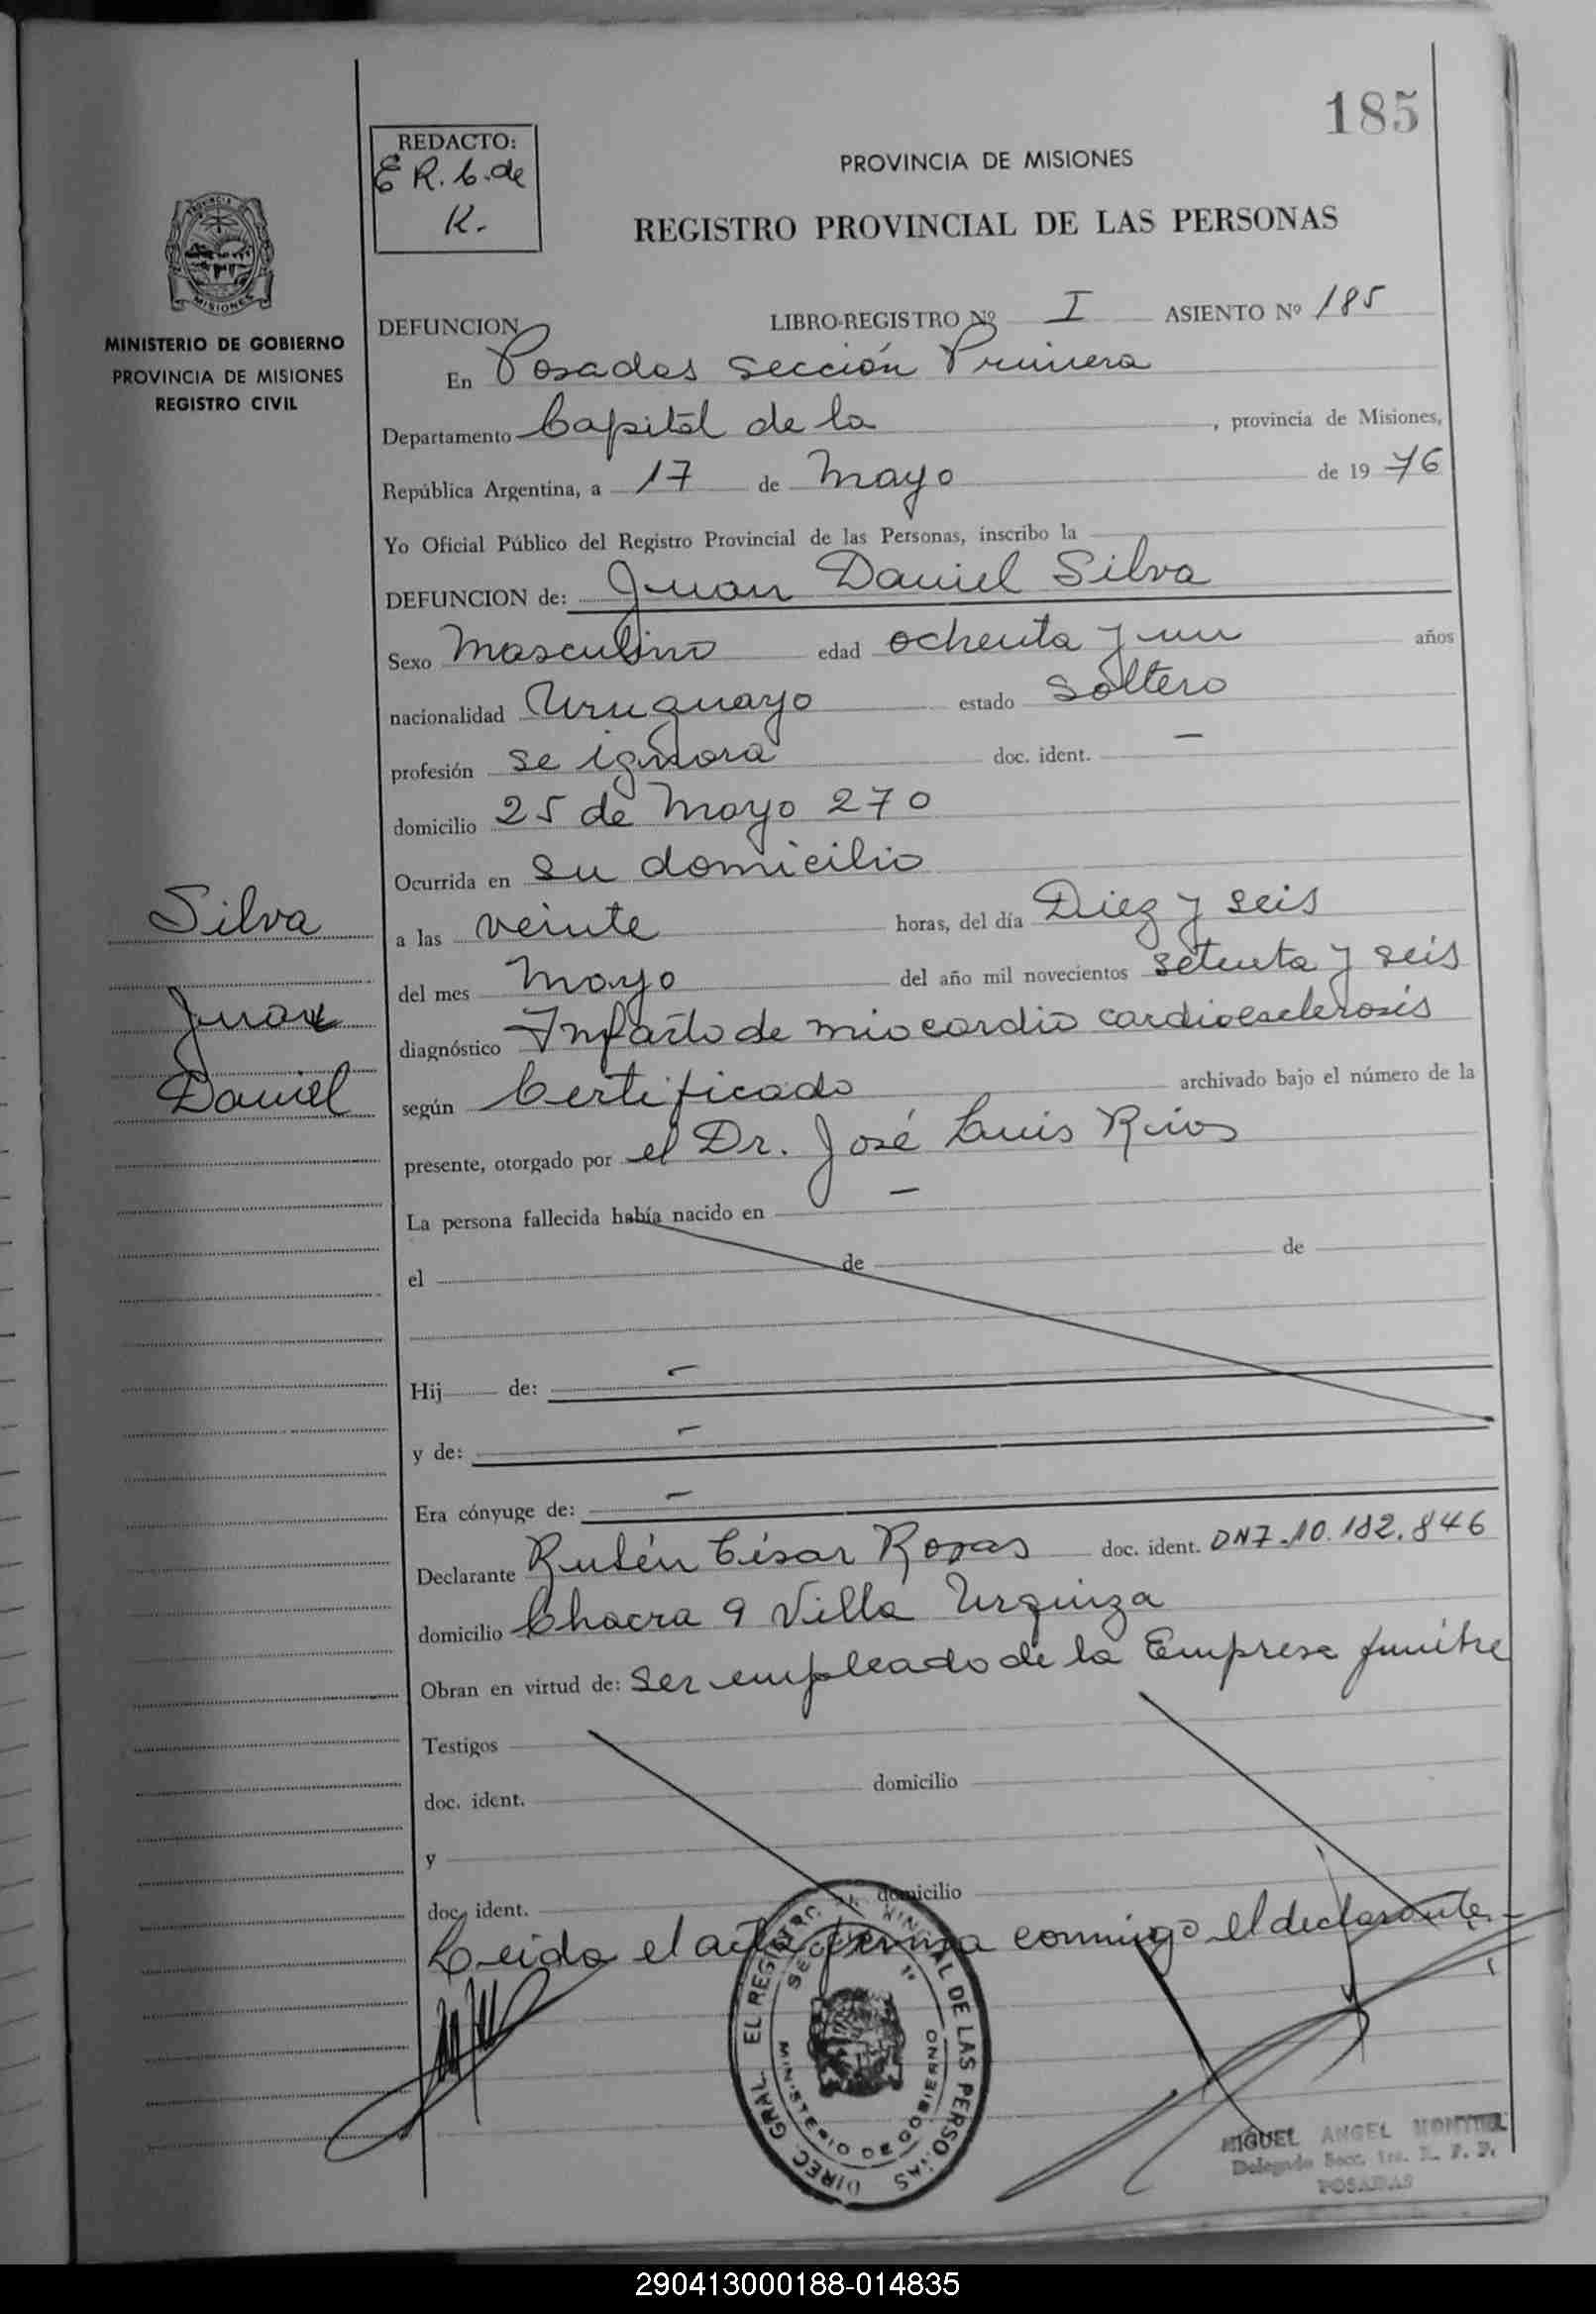 185
REDACTO:
E R. C. de
K.
PROVINCIA DE MISIONES
REGISTRO PROVINCIAL DE LAS PERSONAS
PROVINCIA
MISIONES
MINISTERIO DE GOBIERNO
PROVINCIA DE MISIONES
REGISTRO CIVIL
DEFUNCION LIBRO-REGISTRO Nº I ASIENTO Nº 185
En Posadas Sección Primera
Departamento Capital de la , provincia de Misiones,
República Argentina, a 17 de Mayo de 19 76
Yo Oficial Público del Registro Provincial de las Personas, inscribo la
DEFUNCION de: Juan Daniel Silva
Sexo Masculino edad ochenta y un años
nacionalidad Uruguayo estado Soltero
profesión se ignora doc. ident. —
domicilio 25 de Mayo 270
Ocurrida en su domicilio
a las veinte horas, del día Diez y seis
del mes Mayo del año mil novecientos setenta y seis
diagnóstico Infarto de miocardio cardioesclerosis
según Certificado archivado bajo el número de la
presente, otorgado por el Dr. José Luis Rios
La persona fallecida había nacido en —
el de de
Hij de: —
y de: —
Era cónyuge de: —
Silva
Juan
Daniel
Declarante Rubén César Rojas doc. ident. DNI. 10.182.846
domicilio Chacra 9 Villa Urquiza
Obran en virtud de: ser empleado de la Empresa funebre
Testigos
doc. ident. domicilio
y
doc. ident. domicilio
Leida el acta firma conmigo el declarante.-
DIREC. GRAL. EL REGISTRO DE LAS PERSONAS
MINISTERIO DE GOBIERNO
MIGUEL ANGEL MONTIEL
Delegado Secc. 1ra. R. P. P.
POSADAS
290413000188-014835